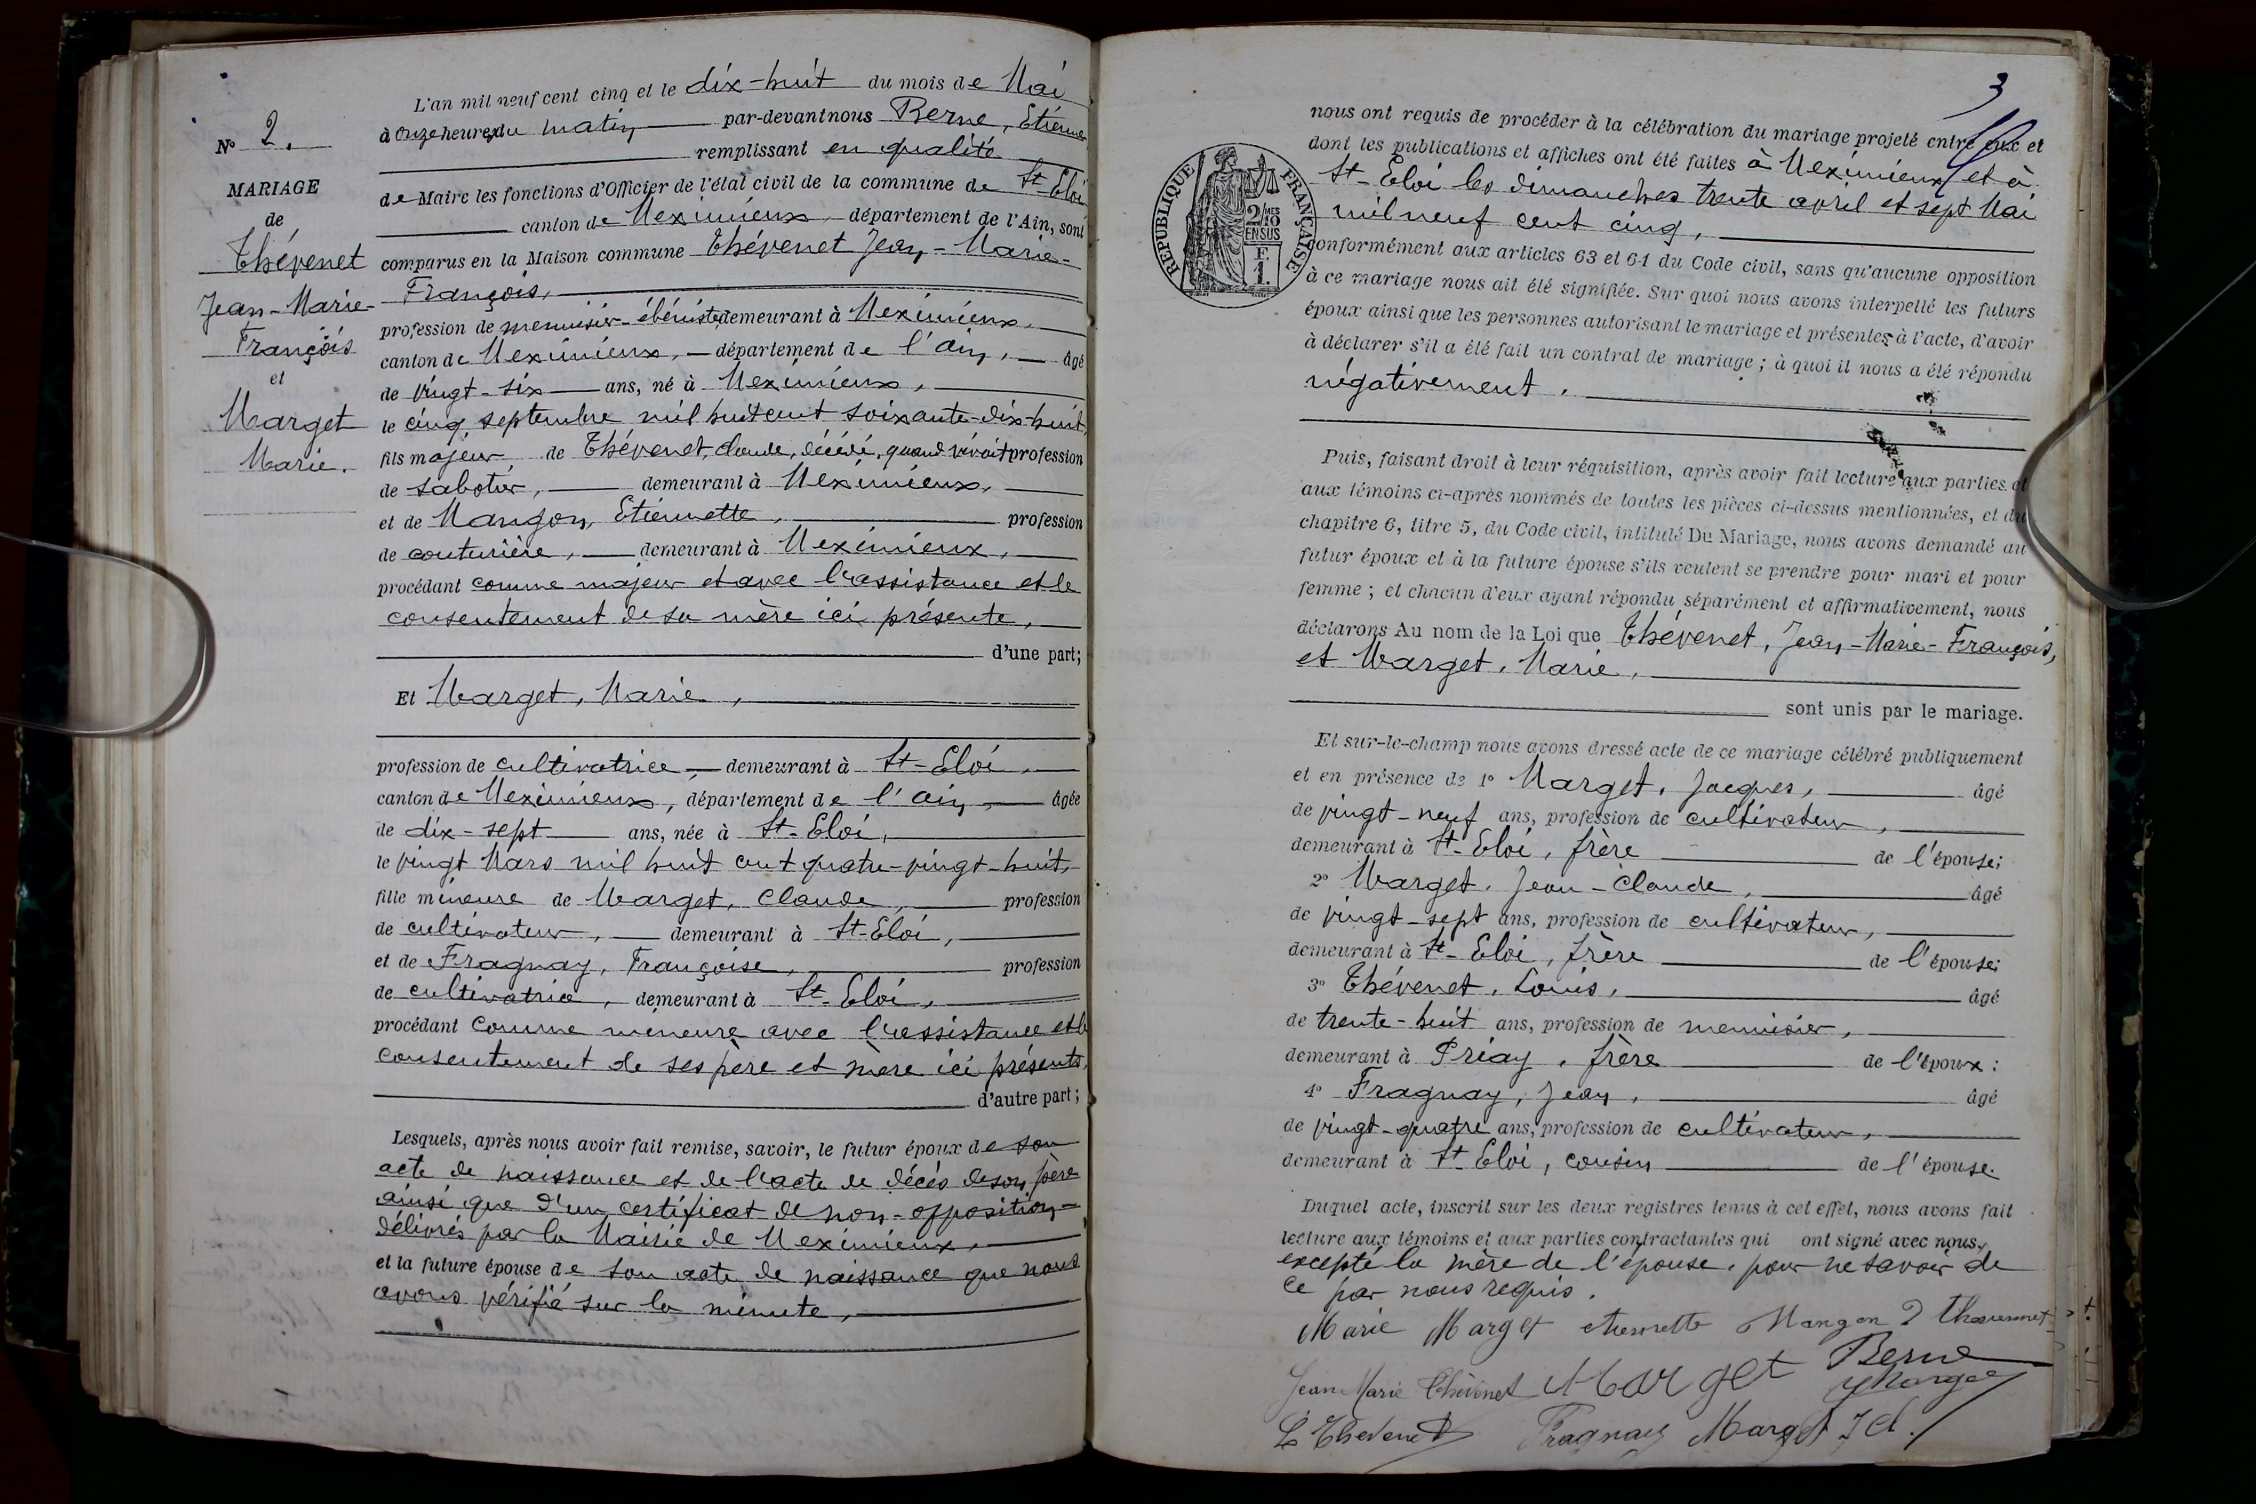 L'an mil neuf cent cinq et le dix-huit du mois de Mai
à onze heures du matin par-devant nous Berne, Etienne
remplissant en qualité
de Maire les fonctions d'Officier de l'état civil de la commune de St-Eloi
canton de Meximieux département de l'Ain, sont
comparus en la Maison commune Thévenet Jean-Marie-
François,
profession de menuisier-ébéniste demeurant à Meximieux,
canton de Meximieux, département de l'ain, âgé
de vingt-six ans, né à Meximieux,
le cinq septembre mil huit cent soixante-dix-huit,
fils majeur de Thévenet, Claude, décédé, quand vivait profession
de sabotier, demeurant à Meximieux,
et de Mangon, Etiennette, profession
de couturière, demeurant à Meximieux,
procédant comme majeur et avec l'assistance et le
consentement de sa mère ici présente,
d'une part;
Et Marget, Marie,
profession de cultivatrice, demeurant à St-Eloi,
canton de Meximieux, département de l'ain, âgée
de dix-sept ans, née à St-Eloi,
le vingt Mars mil huit cent quatre-vingt-huit,
fille mineure de Marget, Claude, profession
de cultivateur, demeurant à St-Eloi,
et de Fragnay, Françoise, profession
de cultivatrice, demeurant à St-Eloi,
procédant comme mineure avec l'assistance et le
consentement de ses père et mère ici présents,
d'autre part;
Lesquels, après nous avoir fait remise, savoir, le futur époux de son
acte de naissance et de l'acte de décès de son père
ainsi que d'un certificat de non-opposition
délivrés par la Mairie de Meximieux,
et la future épouse de son acte de naissance que nous
avons vérifié sur la minute,
No 2.
MARIAGE
de
Thévenet
Jean-Marie-
François
et
Marget
Marie.
3
nous ont requis de procéder à la célébration du mariage projeté entre eux et
dont les publications et affiches ont été faites à Meximieux et à
St-Eloi les dimanches trente avril et sept Mai
mil neuf cent cinq,
conformément aux articles 63 et 64 du Code civil, sans qu'aucune opposition
à ce mariage nous ait été signifiée. Sur quoi nous avons interpellé les futurs
époux ainsi que les personnes autorisant le mariage et présentes à l'acte, d'avoir
à déclarer s'il a été fait un contrat de mariage; à quoi il nous a été répondu
négativement.
Puis, faisant droit à leur réquisition, après avoir fait lecture aux parties et
aux témoins ci-après nommés de toutes les pièces ci-dessus mentionnées, et du
chapitre 6, titre 5, du Code civil, intitulé Du Mariage, nous avons demandé au
futur époux et à la future épouse s'ils veulent se prendre pour mari et pour
femme; et chacun d'eux ayant répondu séparément et affirmativement, nous
déclarons Au nom de la Loi que Thévenet, Jean-Marie-François,
et Marget, Marie,
sont unis par le mariage.
Et sur-le-champ nous avons dressé acte de ce mariage célébré publiquement
et en présence de 1° Marget, Jacques, âgé
de vingt-neuf ans, profession de cultivateur,
demeurant à St-Eloi, frère de l'épouse;
2° Marget, Jean-Claude, âgé
de vingt-sept ans, profession de cultivateur,
demeurant à St-Eloi, frère de l'épouse;
3° Thévenet, Louis, âgé
de trente-huit ans, profession de menuisier,
demeurant à Priay, frère de l'époux:
4° Fragnay, Jean, âgé
de vingt-quatre ans, profession de cultivateur,
demeurant à St-Eloi, cousin de l'épouse.
Duquel acte, inscrit sur les deux registres tenus à cet effet, nous avons fait
lecture aux témoins et aux parties contractantes qui ont signé avec nous,
excepté la mère de l'épouse, pour ne savoir de
ce par nous requis.
Marie Marget etiennette Mangon
Jean Marie Thévenet Marget Berne
L Thevenet Fragnay Marget J Cl.
RÉPUBLIQUE FRANÇAISE
2/10MES
EN SUS
F.
1.